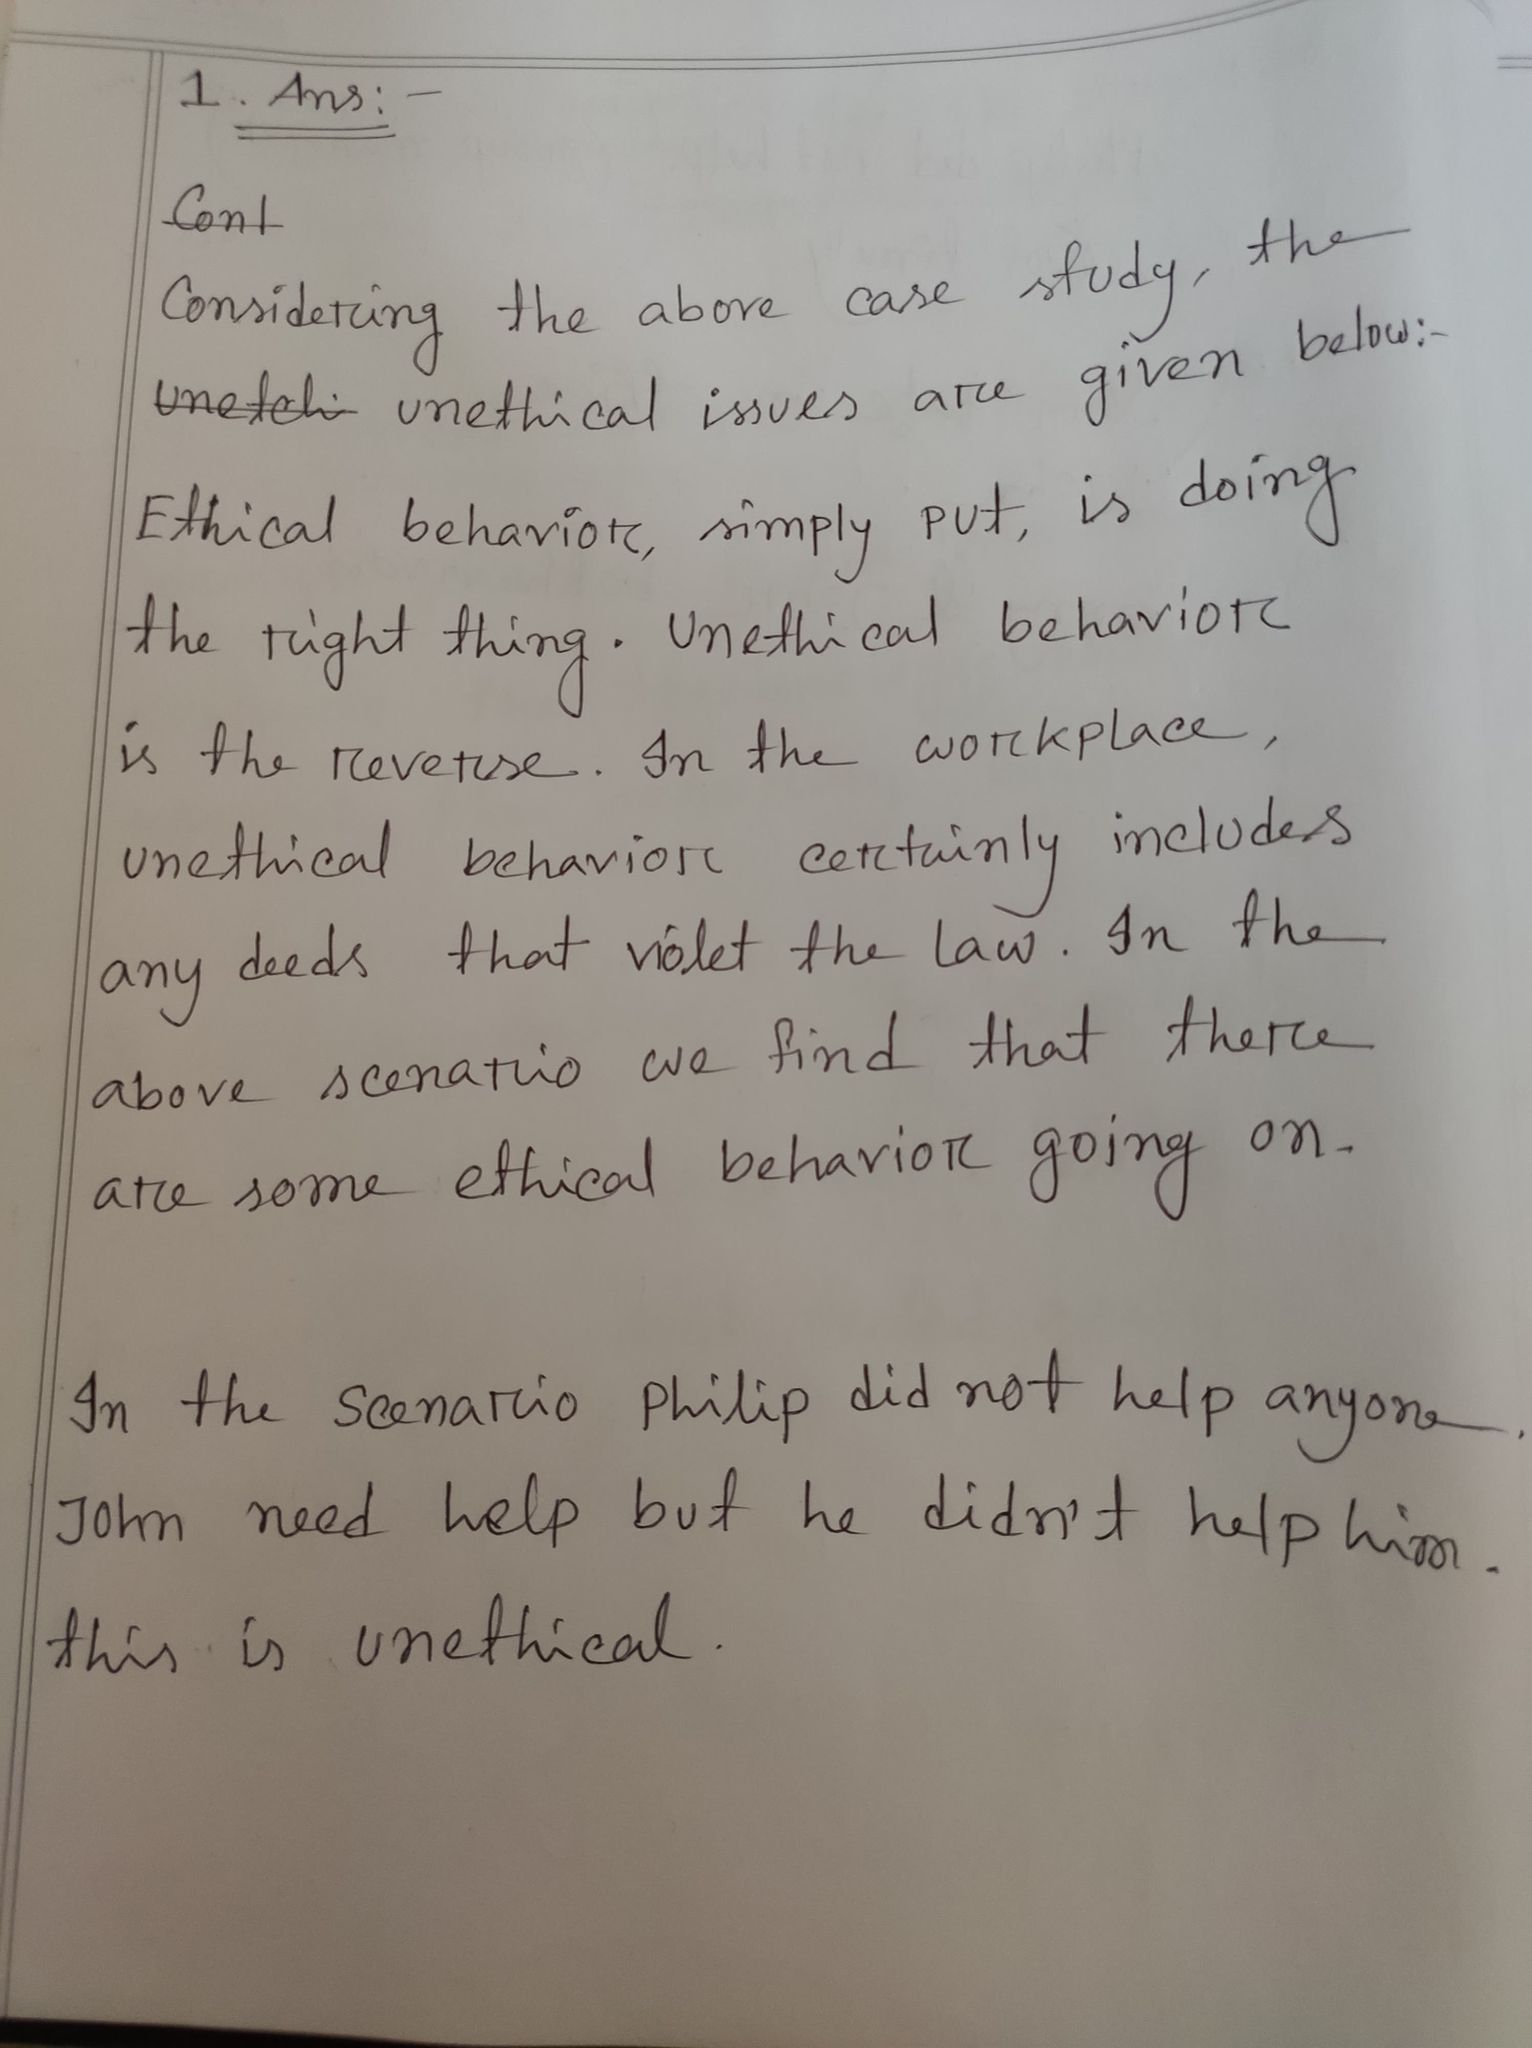 1. Ans:-
Cont
Considering the above case study, the
unetch unethical issues are given below:-
Ethical behavior, simply put, is doing
the right thing. Unethical behavior
is the reverse. In the workplace,
unethical behavior certainly includes
any deeds that violet the law. In the
above scenario we find that there
are some ethical behavior going on.
In the scenario Philip did not help anyone.
John need help but he didn't help him.
this is unethical.